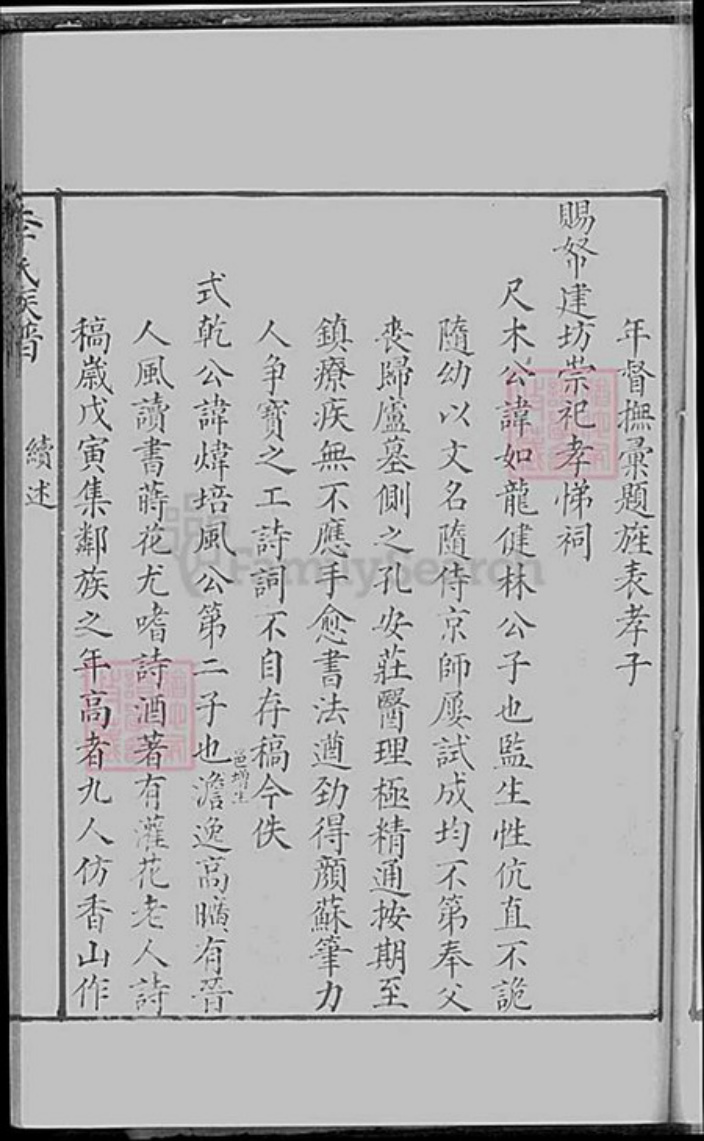 年督撫彙題旌表孝子
賜帑建坊崇祀孝悌祠
尺木公諱如龍健林公子也監生性伉直不詭
隨幼以文名隨侍京師屢試成均不第奉父
喪歸廬墓側之孔安莊醫理極精通按期至
鎮療疾無不應手愈書法遒勁得顏蘇筆力
人爭寶之工詩詞不自存稿今佚
式乾公諱煒培風公第二子也邑增生澹逸高曠有晉
人風讀書蒔花尤嗜詩酒著有灌花老人詩
稿歲戊寅集鄰族之年高者九人仿香山作
李氏族譜 續述
FamilySearch